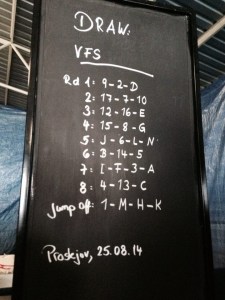 DRAW:
VFS
Rd 1: 9-2-D
2: 17-7-10
3: 12-16-E
4: 15-8-G
5: J-6-L-N
6: B-14-5
7: I-F-3-A
8: 4-13-C
Jump off: 1-M-H-K
Prostejov, 25.08.14